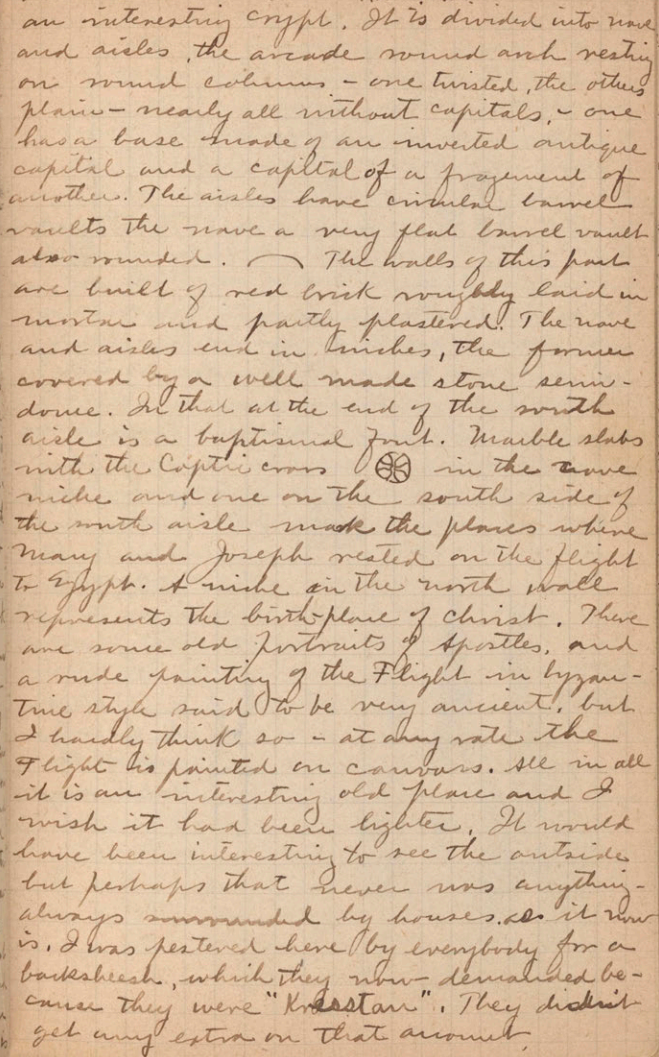 an interesting crypt. It is divided into nave
and aisles, the arcade round arch resting
on round columns - one twisted, the others
plain - nearly all without capitals, - one
has a base made of an inverted antique
capital and a capital of a fragement of
another. The aisles have circular barrel
vaults the nave a very flat barrel vault
also rounded. The walls of this part
are built of red brick roughly laid in
mortar and partly plastered. The nave
and aisles end in niches, the former
covered by a well made stone semi-
dome. In that at the end of the south
aisle is a baptismal font. Marble slabs
with the Coptic cross in the nave
niche and one on the south side of
the south aisle mark the places where
Mary and Joseph rested on the flight
to Egypt. A niche in the north wall
represents the birth-place of Christ. There
are some old portraits of Apostles, and
a rude painting of the Flight in byzan-
tine style said to be very ancient, but
I hardly think so - at any rate the
Flight is painted on canvass. All in all
it is an interesting old place and I
wish it had been lighter. It would
have been interesting to see the outside
but perhaps that never was anything -
always surrounded by houses as it now
is. I was pestered here by everybody for a
backsheesh, which they now demanded be-
cause they were "Kresstan". They didnt
get any extra on that account.